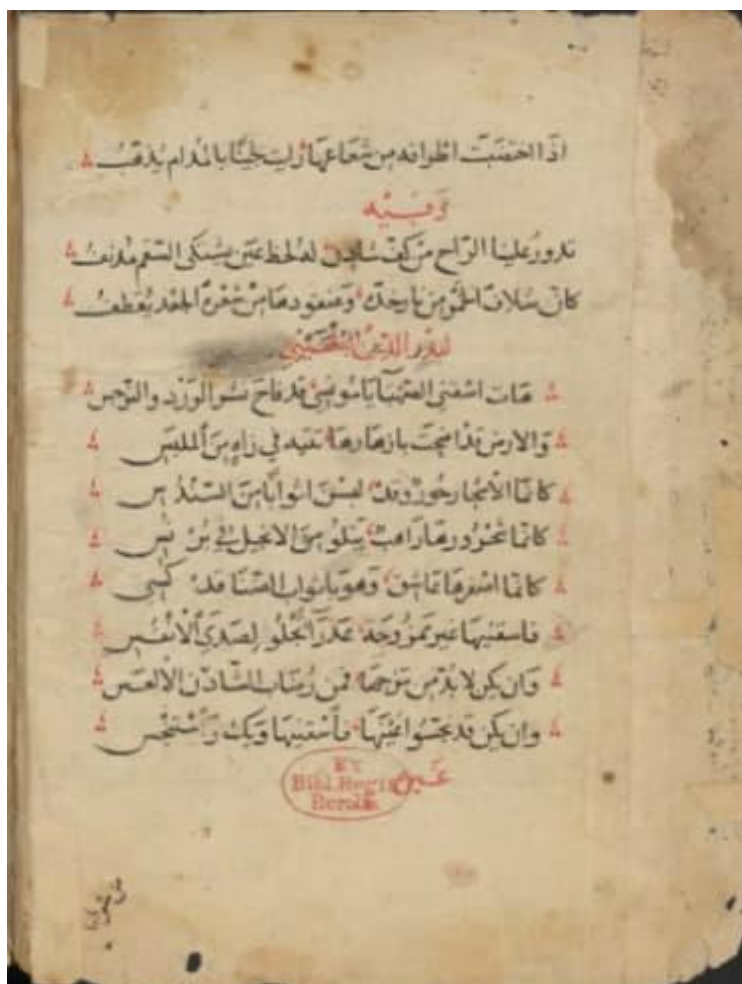 اذا اختضبت اطرافه من شعاعها رايت لجينا بالمدام يذهب
وفيه
تدور علينا الراح من كف شادن له لحظ عين يشتكي السقم مدنف
كان سلاف الخمر من ماء خده وعنقودها من شعره الجعد يقطف
لبدر الدين
هات اسقني الصهبآ يا مونسي قد فاح نشر الورد والنرجس
والارض قد اضحت بازهارها تتيه في زاه من الملبس
كانما الاشجار حور وقد لبسن اثوابا من السندس
كانما شحرورها راهب يتلو من الانجيل في برنس
كانما اصفرها عاشق وهو باثواب الضنا قد كسي
فاسقنيها غير ممزوجة عذرآ تجلو لصدي الانفس
وان يكن لا بد من مزجها فمن رضاب الشادن الالعس
وان يكن قد نجسوا عينها فأسقنيها ويك واستنجس
غيره
EX
Bibl. Regia
Berolin.